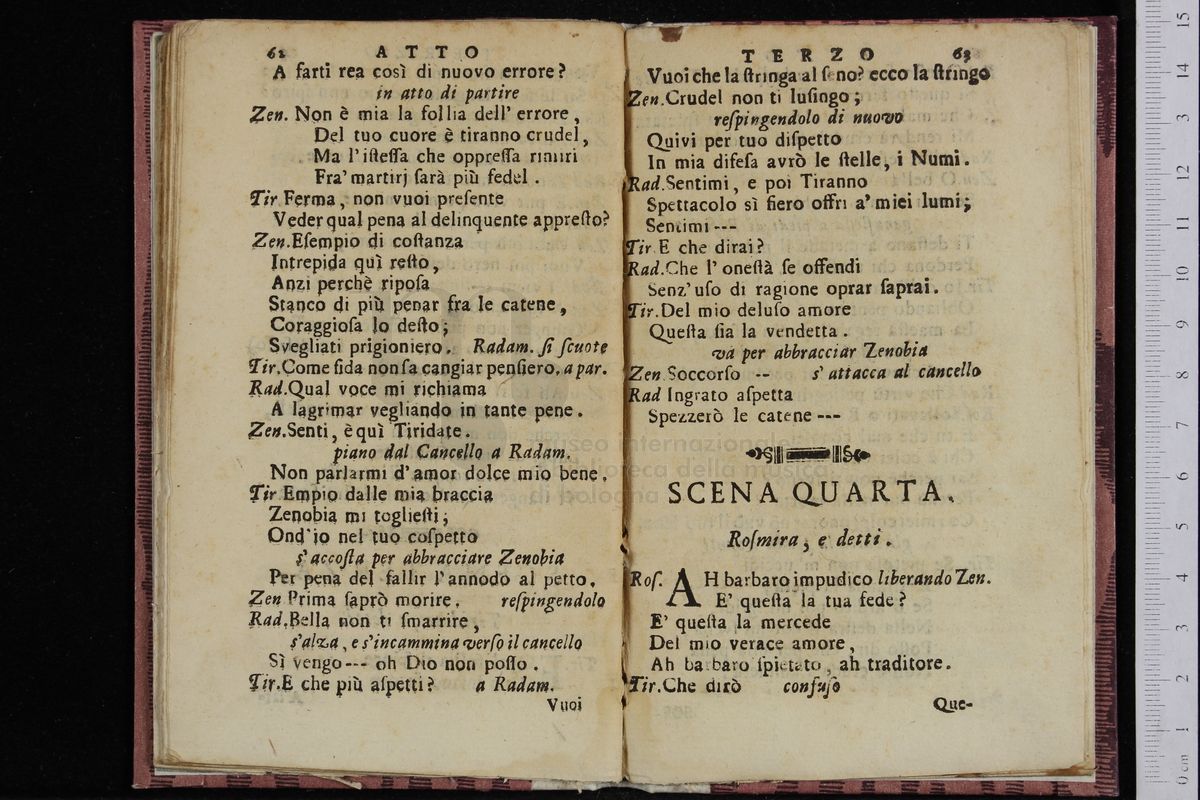 62 ATTO
A farti rea così di nuovo errore?
in atto di partire
Zen. Non è mia la follia dell' errore,
Del tuo cuore è tiranno crudel,
Ma l'iſteſſa che oppreſſa rimiri
Fra' martirj ſarà più fedel.
Tir. Ferma, non vuoi preſente
Veder qual pena al delinquente appreſto?
Zen. Eſempio di coſtanza
Intrepida quì reſto,
Anzi perchè ripoſa
Stanco di più penar fra le catene,
Coraggioſa lo deſto;
Svegliati prigioniero. Radam. ſi ſcuote
Tir. Come ſida non ſa cangiar penſiero. a par.
Rad. Qual voce mi richiama
A lagrimar vegliando in tante pene.
Zen. Senti, è quì Tiridate.
piano dal Cancello a Radam.
Non parlarmi d'amor dolce mio bene.
Tir Empio dalle mia braccia
Zenobia mi toglieſti;
Ond'io nel tuo coſpetto
s'accoſta per abbracciare Zenobia
Per pena del fallir l'annodo al petto.
Zen Prima ſaprò morire. reſpingendolo
Rad. Bella non ti ſmarrire,
s'alza, e s'incammina verſo il cancello
Sì vengo --- oh Dio non poſſo.
Tir. E che più aſpetti? a Radam.
Vuoi
TERZO 63
Vuoi che la ſtringa al ſeno? ecco la ſtringo
Zen. Crudel non ti luſingo;
reſpingendolo di nuovo
Quivi per tuo diſpetto
In mia difeſa avrò le ſtelle, i Numi.
Rad. Sentimi, e poi Tiranno
Spettacolo sì fiero offri a' miei lumi;
Sentimi ---
Tir. E che dirai?
Rad. Che l'oneſtà ſe offendi
Senz'uſo di ragione oprar ſaprai.
Tir. Del mio deluſo amore
Queſta ſia la vendetta.
va per abbracciar Zenobia
Zen. Soccorſo -- s'attacca al cancello
Rad Ingrato aſpetta
Spezzerò le catene ---
SCENA QUARTA.
Roſmira, e detti.
Roſ. AH barbaro impudico liberando Zen.
E' queſta la tua fede?
E' queſta la mercede
Del mio verace amore,
Ah barbaro ſpietato, ah traditore.
Tir. Che dirò confuſo
Que-
museo internazionale
biblioteca della musica
di bologna
15
14
13
12
11
10
9
8
7
6
5
4
3
2
1
0 cm